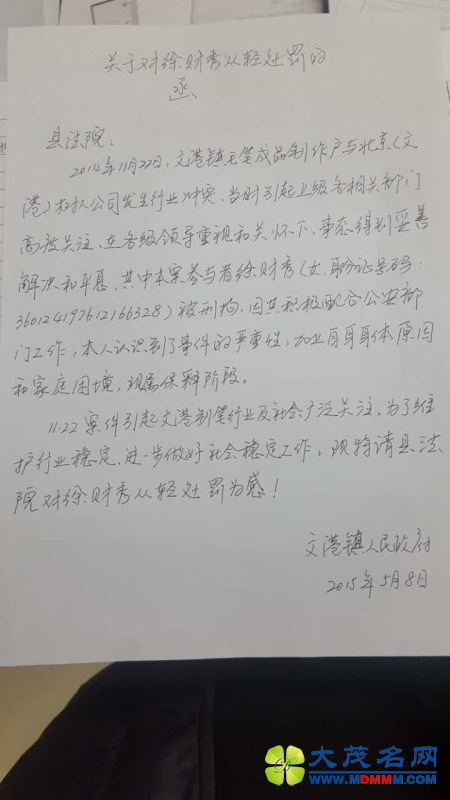 关于对徐财秀从轻处罚的
函
县法院:
2014年11月22日,文港镇毛笔成品制作户与北京(文
港)权扒公司发生行业冲突,当时引起上级各相关部门
高度关注,在各级领导重视和关怀下,事态得到妥善
解决和平息,其中本案参与者徐财秀(女,身份证号码:
360124197612166328)被刑拘,因其积极配合公安部
门工作,本人认识到了事件的严重性,加上自身身体原因
和家庭困境,现属保释阶段。
11.22案件引起文港制笔行业及社会广泛关注,为了维
护行业稳定,进一步做好社会稳定工作。现特请县法
院对徐财秀从轻处罚为感!
文港镇人民政府
2015年5月8日
大茂名网
www.MDMMM.com